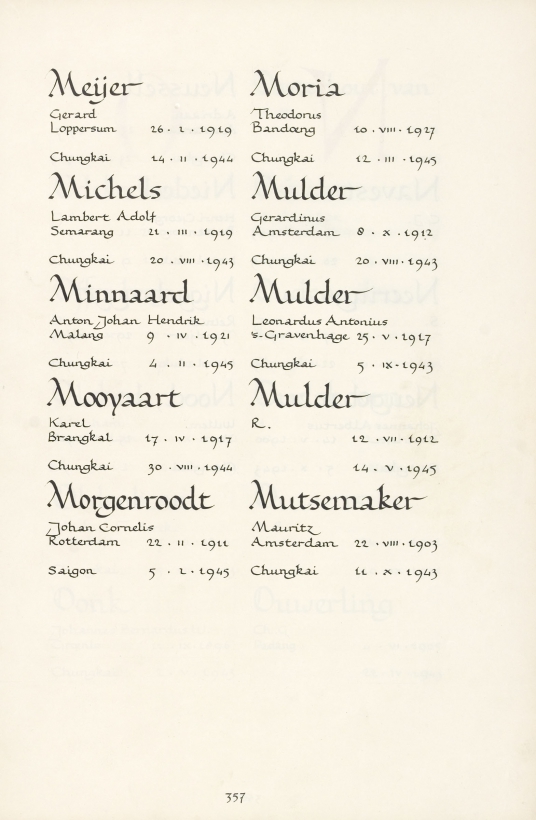 Meijer
Gerard
Loppersum 26 · 1 · 1919
Chungkai 14 · II · 1944
Michels
Lambert Adolf
Semarang 21 · III · 1919
Chungkai 20 · VIII · 1943
Minnaard
Anton Johan Hendrik
Malang 9 · IV · 1921
Chungkai 4 · II · 1945
Mooyaart
Karel
Brangkal 17 · IV · 1917
Chungkai 30 · VIII · 1944
Morgenroodt
Johan Cornelis
Rotterdam 22 · II · 1911
Saigon 5 · 2 · 1945
Moria
Theodorus
Bandoeng 10 · VIII · 1927
Chungkai 12 · III · 1945
Mulder
Gerardinus
Amsterdam 8 · X · 1912
Chungkai 20 · VIII · 1943
Mulder
Leonardus Antonius
's-Gravenhage 25 · V · 1917
Chungkai 5 · IX · 1943
Mulder
R.
12 · VII · 1912
14 · V · 1945
Mutsemaker
Mauritz
Amsterdam 22 · VIII · 1903
Chungkai 11 · X · 1943
357